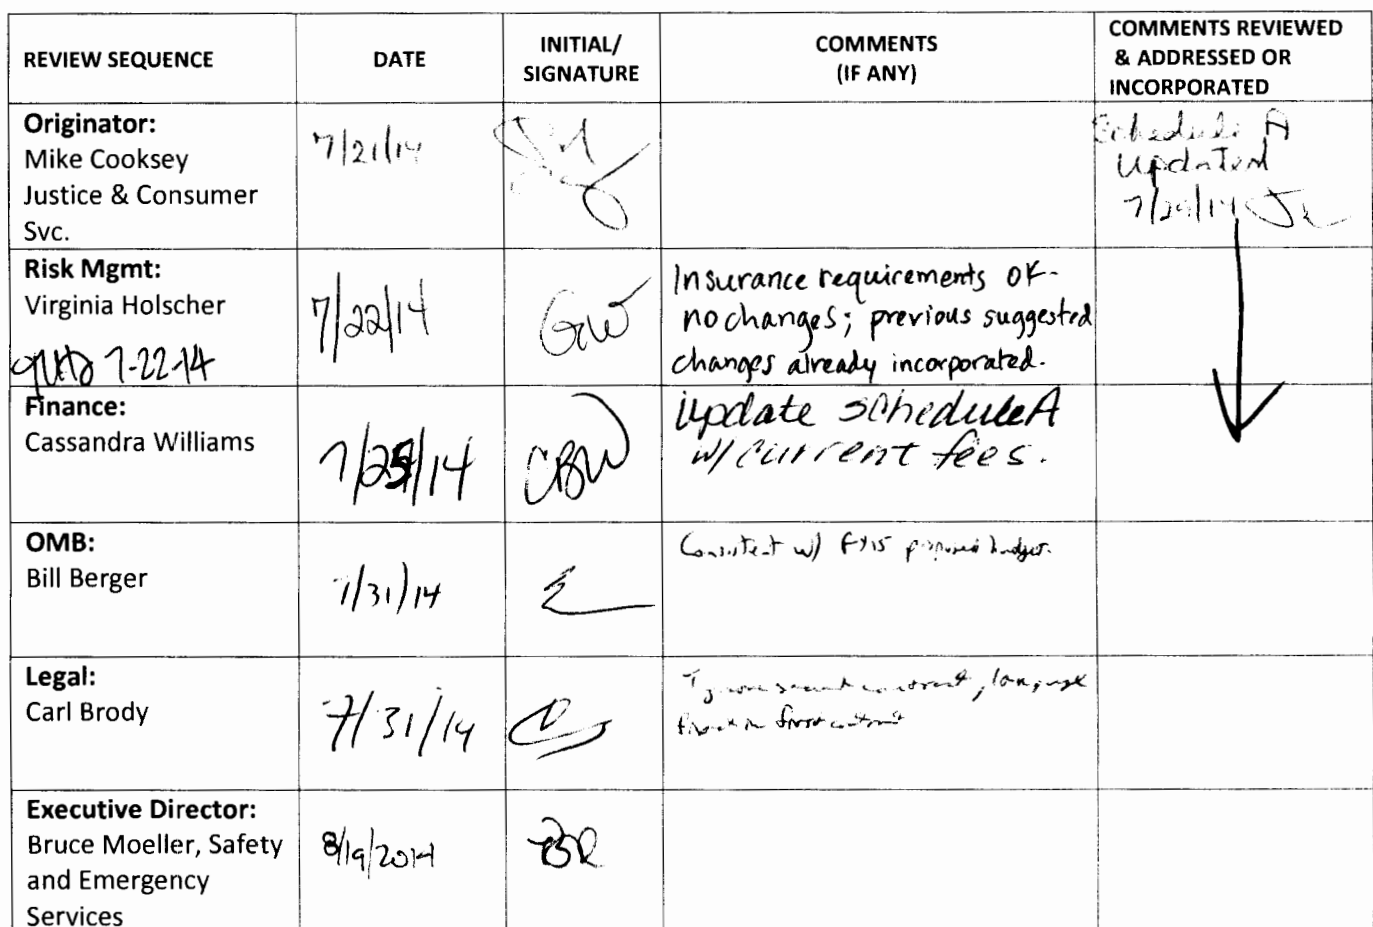 REVIEW SEQUENCE
DATE
INITIAL/
SIGNATURE
COMMENTS
(IF ANY)
COMMENTS REVIEWED
& ADDRESSED OR
INCORPORATED
Originator:
Mike Cooksey
Justice & Consumer
Svc.
7/21/14
Schedule A
Updated
Risk Mgmt:
Virginia Holscher
7-22-14
7/22/14
GW
Insurance requirements OK-
no changes; previous suggested
changes already incorporated.
Finance:
Cassandra Williams
7/25/14
CBW
Update schedule A
w/ current fees.
OMB:
Bill Berger
7/31/14
Consistent w/ FY15 proposed budget.
Legal:
Carl Brody
7/31/14
contract, language
first contract
Executive Director:
Bruce Moeller, Safety
and Emergency
Services
8/19/2014